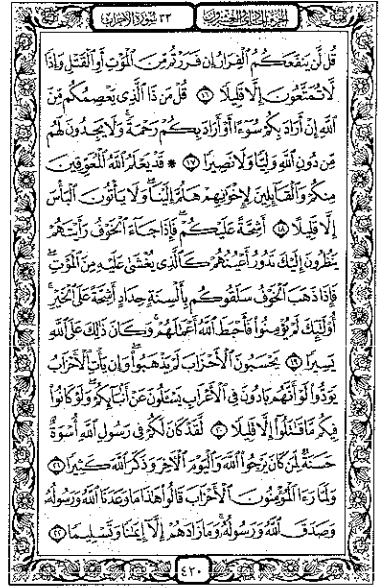 الجزء الحادي والعشرون
٣٣ سورة الأحزاب
قُل لَّن يَنفَعَكُمُ ٱلْفِرَارُ إِن فَرَرْتُم مِّنَ ٱلْمَوْتِ أَوِ ٱلْقَتْلِ وَإِذًا
لَّا تُمَتَّعُونَ إِلَّا قَلِيلًا ١٦ قُلْ مَن ذَا ٱلَّذِى يَعْصِمُكُم مِّنَ
ٱللَّهِ إِنْ أَرَادَ بِكُمْ سُوٓءًا أَوْ أَرَادَ بِكُمْ رَحْمَةً ۚ وَلَا يَجِدُونَ لَهُم
مِّن دُونِ ٱللَّهِ وَلِيًّا وَلَا نَصِيرًا ١٧ * قَدْ يَعْلَمُ ٱللَّهُ ٱلْمُعَوِّقِينَ
مِنكُمْ وَٱلْقَآئِلِينَ لِإِخْوَٰنِهِمْ هَلُمَّ إِلَيْنَا ۖ وَلَا يَأْتُونَ ٱلْبَأْسَ
إِلَّا قَلِيلًا ١٨ أَشِحَّةً عَلَيْكُمْ ۖ فَإِذَا جَآءَ ٱلْخَوْفُ رَأَيْتَهُمْ
يَنظُرُونَ إِلَيْكَ تَدُورُ أَعْيُنُهُمْ كَٱلَّذِى يُغْشَىٰ عَلَيْهِ مِنَ ٱلْمَوْتِ ۖ
فَإِذَا ذَهَبَ ٱلْخَوْفُ سَلَقُوكُم بِأَلْسِنَةٍ حِدَادٍ أَشِحَّةً عَلَى ٱلْخَيْرِ ۚ
أُو۟لَٰٓئِكَ لَمْ يُؤْمِنُوا۟ فَأَحْبَطَ ٱللَّهُ أَعْمَٰلَهُمْ ۚ وَكَانَ ذَٰلِكَ عَلَى ٱللَّهِ
يَسِيرًا ١٩ يَحْسَبُونَ ٱلْأَحْزَابَ لَمْ يَذْهَبُوا۟ ۖ وَإِن يَأْتِ ٱلْأَحْزَابُ
يَوَدُّوا۟ لَوْ أَنَّهُم بَادُونَ فِى ٱلْأَعْرَابِ يَسْـَٔلُونَ عَنْ أَنۢبَآئِكُمْ ۖ وَلَوْ كَانُوا۟
فِيكُم مَّا قَٰتَلُوٓا۟ إِلَّا قَلِيلًا ٢٠ لَّقَدْ كَانَ لَكُمْ فِى رَسُولِ ٱللَّهِ أُسْوَةٌ
حَسَنَةٌ لِّمَن كَانَ يَرْجُوا۟ ٱللَّهَ وَٱلْيَوْمَ ٱلْءَاخِرَ وَذَكَرَ ٱللَّهَ كَثِيرًا ٢١
وَلَمَّا رَءَا ٱلْمُؤْمِنُونَ ٱلْأَحْزَابَ قَالُوا۟ هَٰذَا مَا وَعَدَنَا ٱللَّهُ وَرَسُولُهُۥ
وَصَدَقَ ٱللَّهُ وَرَسُولُهُۥ ۚ وَمَا زَادَهُمْ إِلَّآ إِيمَٰنًا وَتَسْلِيمًا ٢٢
٤٢٠